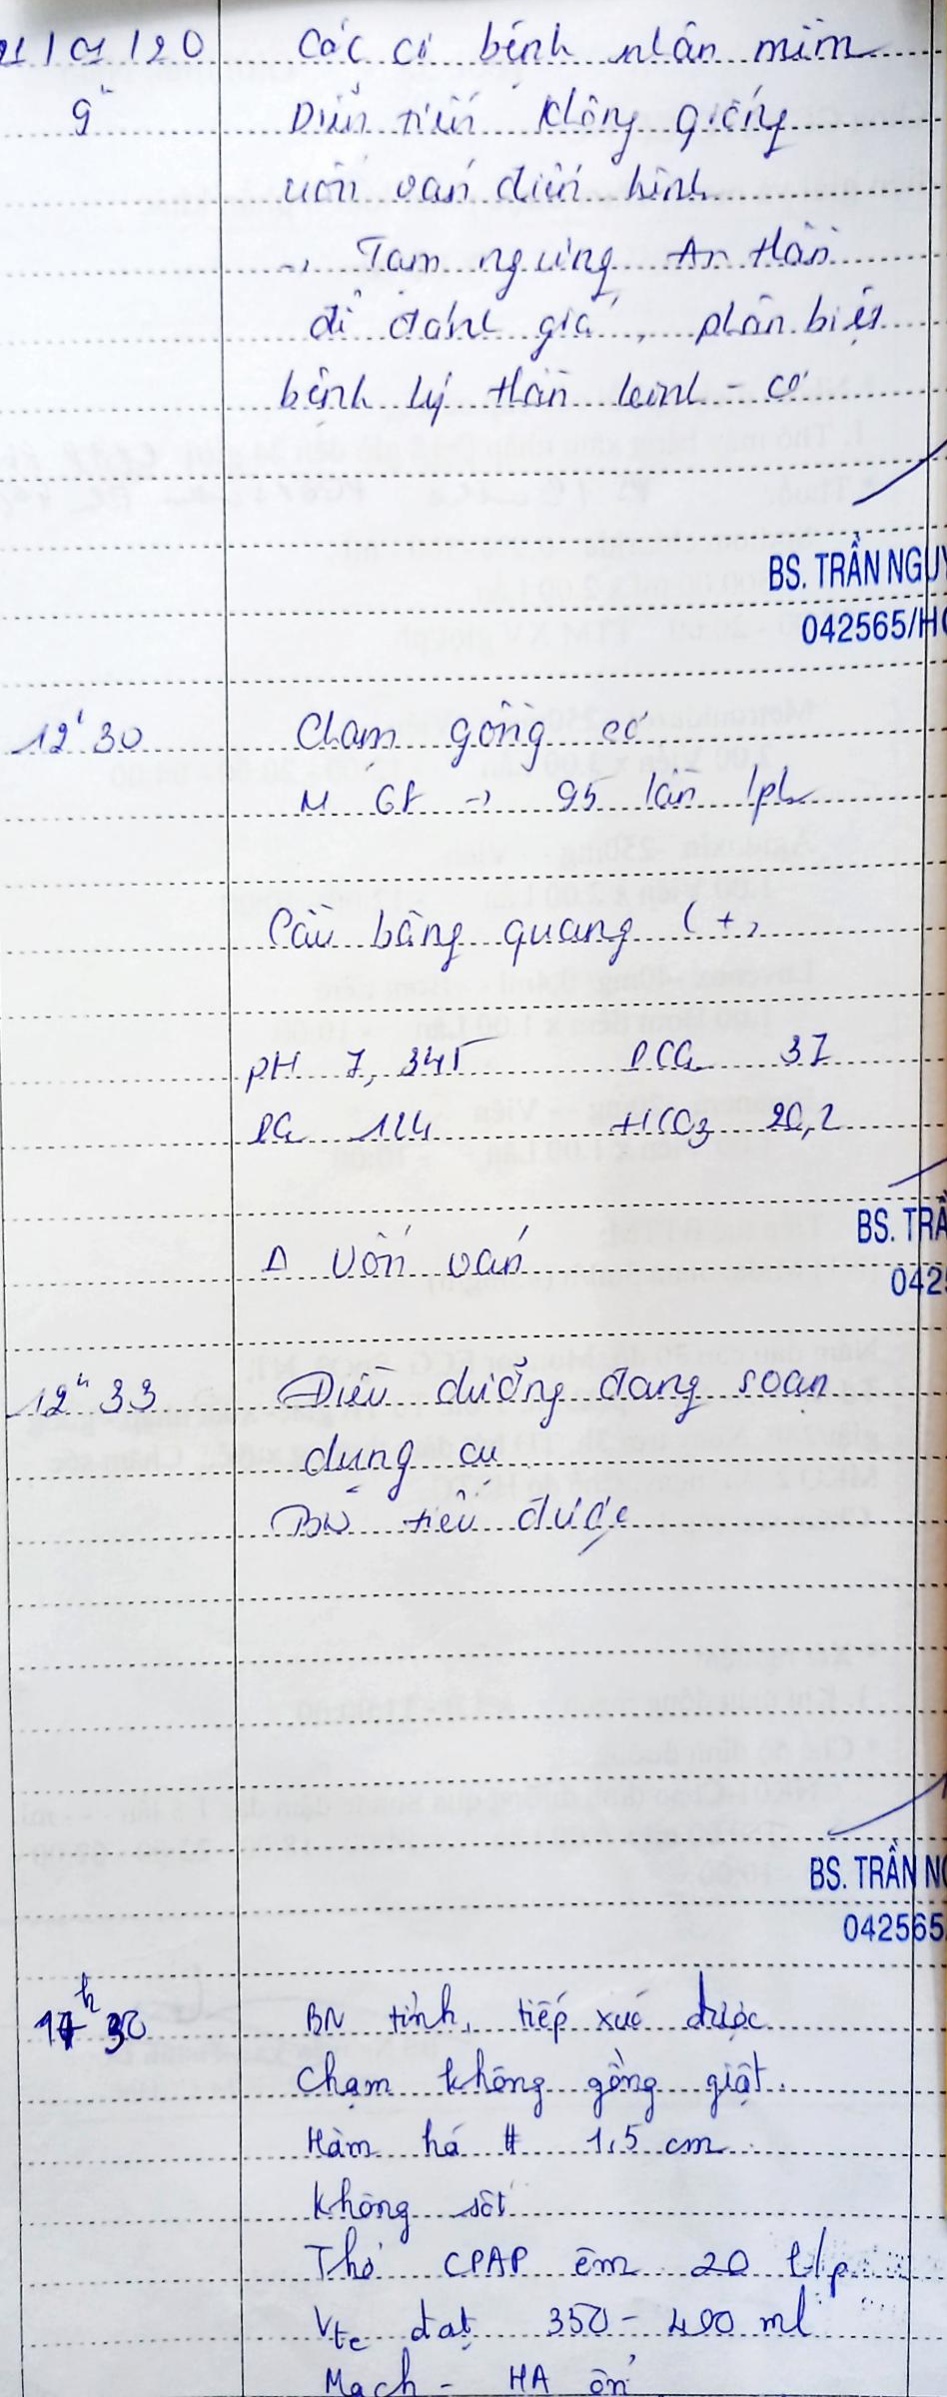 21/9/20 Các cơ bệnh nhân mềm
9h Diễn tiến không giống
uốn ván điển hình
-> Tạm ngưng An thần
để đánh giá, phân biệt
bệnh lý thần kinh - cơ
BS. TRẦN NGUY
042565/HC
12h30 Chạm gồng cơ
M 68 -> 95 lần /ph
Cầu bàng quang (+)
pH 7,345 PCO2 37
PO2 124 HCO3 20,2
BS. TRẦ
042
Δ Uốn ván
12h33 Điều dưỡng đang soạn
dụng cụ
BN tiểu được
BS. TRẦN NG
042565
17h30 BN tỉnh, tiếp xúc được
Chạm không gồng giật.
Hàm há # 1,5 cm
Không sốt
Thở CPAP êm 20 l/p
Vte đạt 350 - 400 ml
Mạch - HA ổn